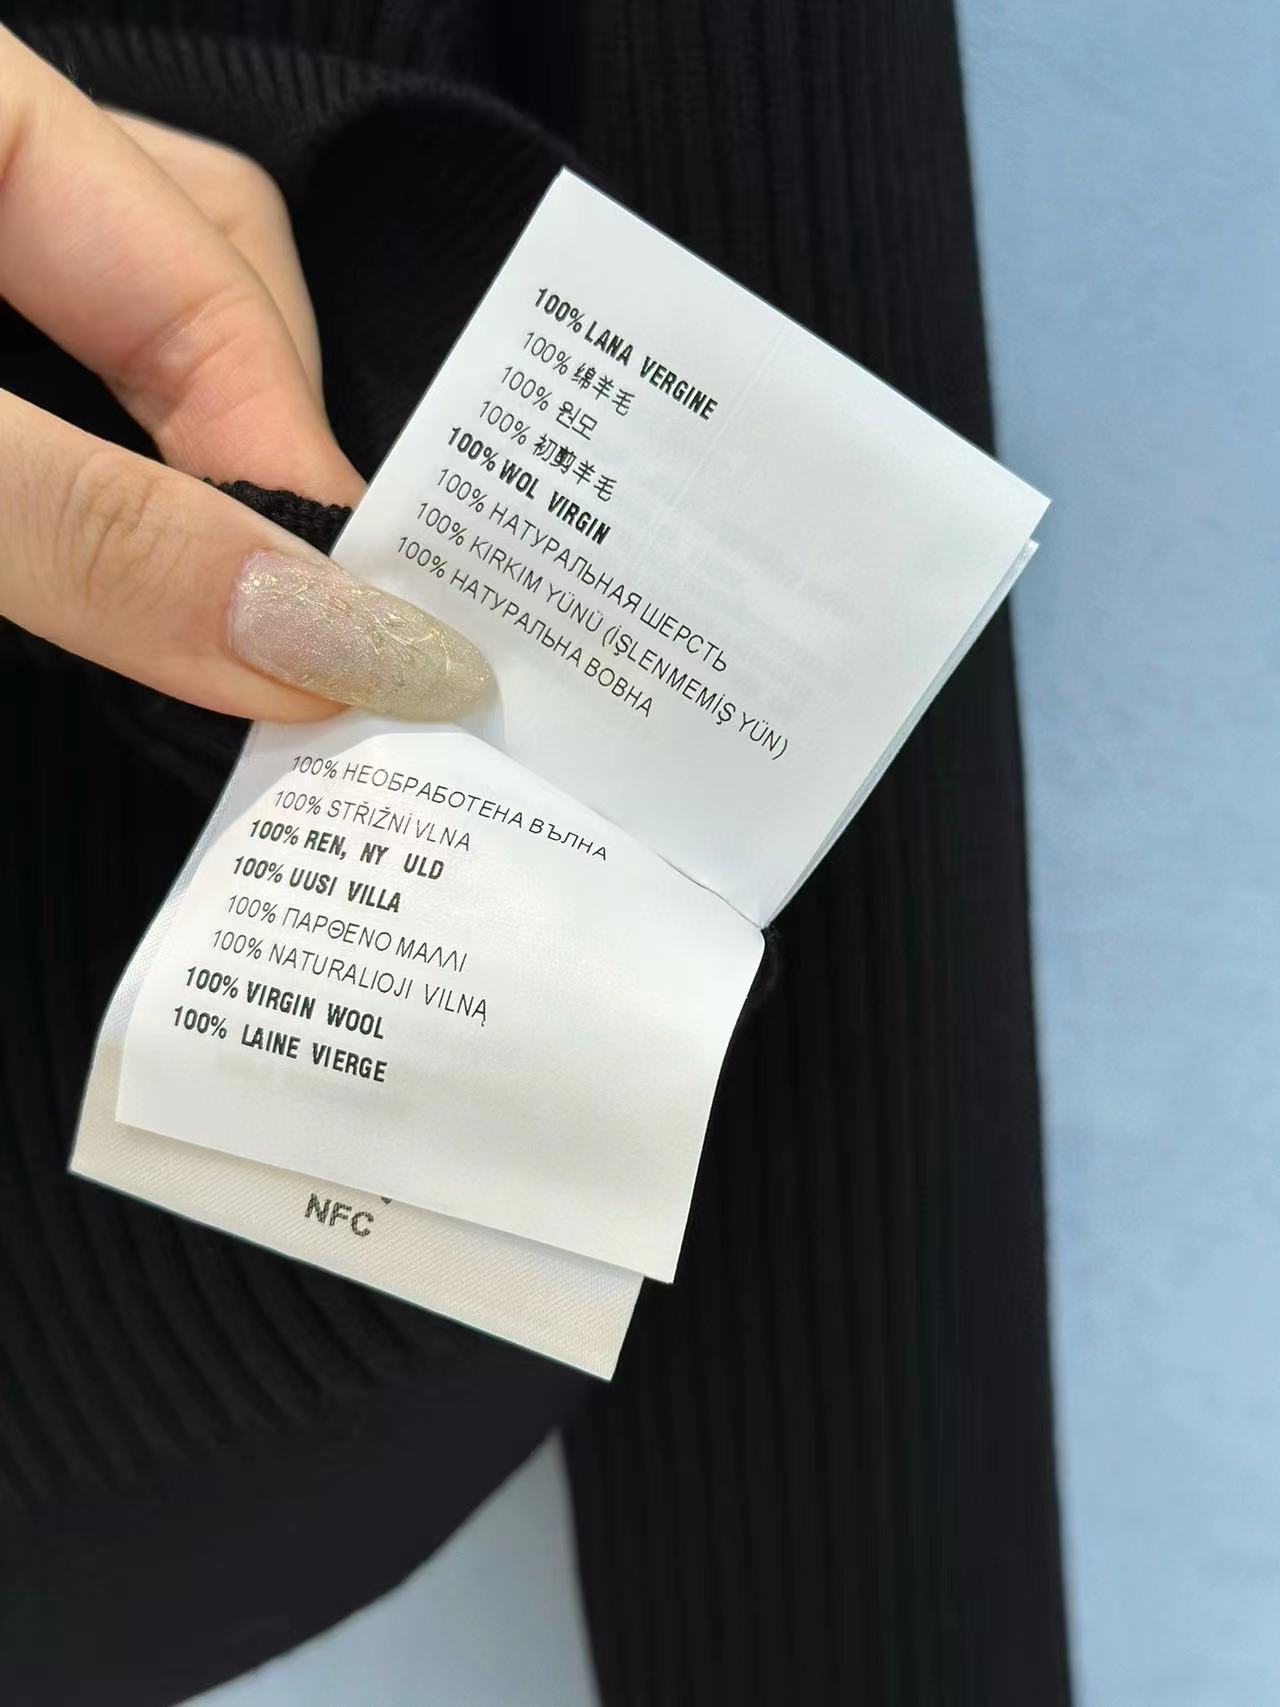 100% LANA VERGINE
100% 绵羊毛
100% 원모
100% 初剪羊毛
100% WOL VIRGIN
100% НАТУРАЛЬНАЯ ШЕРСТЬ
100% KIRKIM YÜNÜ (İŞLENMEMİŞ YÜN)
100% НАТУРАЛЬНА ВОВНА
100% НЕОБРАБОТЕНА ВЪЛНА
100% STŘIŽNÍ VLNA
100% REN, NY ULD
100% UUSI VILLA
100% ΠΑΡΘΕΝΟ ΜΑΛΛΙ
100% NATURALIOJI VILNĄ
100% VIRGIN WOOL
100% LAINE VIERGE
NFC